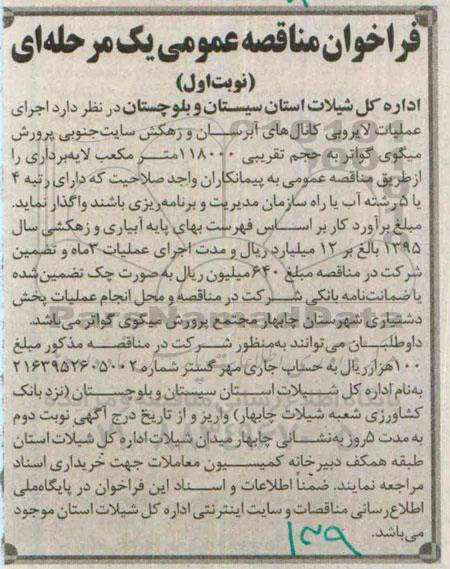 فراخوان مناقصه عمومی یک مرحله‌ای
(نوبت اول)
اداره کل شیلات استان سیستان و بلوچستان در نظر دارد اجرای
عملیات لایروبی کانال‌های آبرسان و زهکش سایت جنوبی پرورش
میگوی گواتر به حجم تقریبی ۱۱۸۰۰۰متر مکعب لایه‌برداری را
ازطریق مناقصه عمومی به پیمانکاران واجد صلاحیت که دارای رتبه ۴
یا ۵ رشته آب یا راه سازمان مدیریت و برنامه‌ریزی باشند واگذار نماید.
مبلغ برآورد کار بر اساس فهرست بهای پایه آبیاری و زهکشی سال
۱۳۹۵ بالغ بر ۱۲ میلیارد ریال و مدت اجرای عملیات ۳ماه و تضمین
شرکت در مناقصه مبلغ ۶۴۰میلیون ریال به صورت چک تضمین شده
یا ضمانت‌نامه بانکی شرکت در مناقصه و محل انجام عملیات پخش
دشتیاری شهرستان چابهار مجتمع پرورش میگوی گواتر می‌باشد.
داوطلبان می‌توانند به‌منظور شرکت در مناقصه مذکور مبلغ
۱۰۰هزار ریال به حساب جاری مهر گستر شماره
به‌نام اداره کل شیلات استان سیستان و بلوچستان (نزد بانک
کشاورزی شعبه شیلات چابهار) واریز و از تاریخ درج آگهی نوبت دوم
به مدت ۵روز به‌نشانی چابهار میدان شیلات اداره کل شیلات استان
طبقه همکف دبیرخانه کمیسیون معاملات جهت خریداری اسناد
مراجعه نمایند. ضمناً اطلاعات و اسناد این فراخوان در پایگاه‌ملی
اطلاع‌رسانی مناقصات و سایت اینترنتی اداره کل شیلات استان موجود
می‌باشد.
ParsNamadData